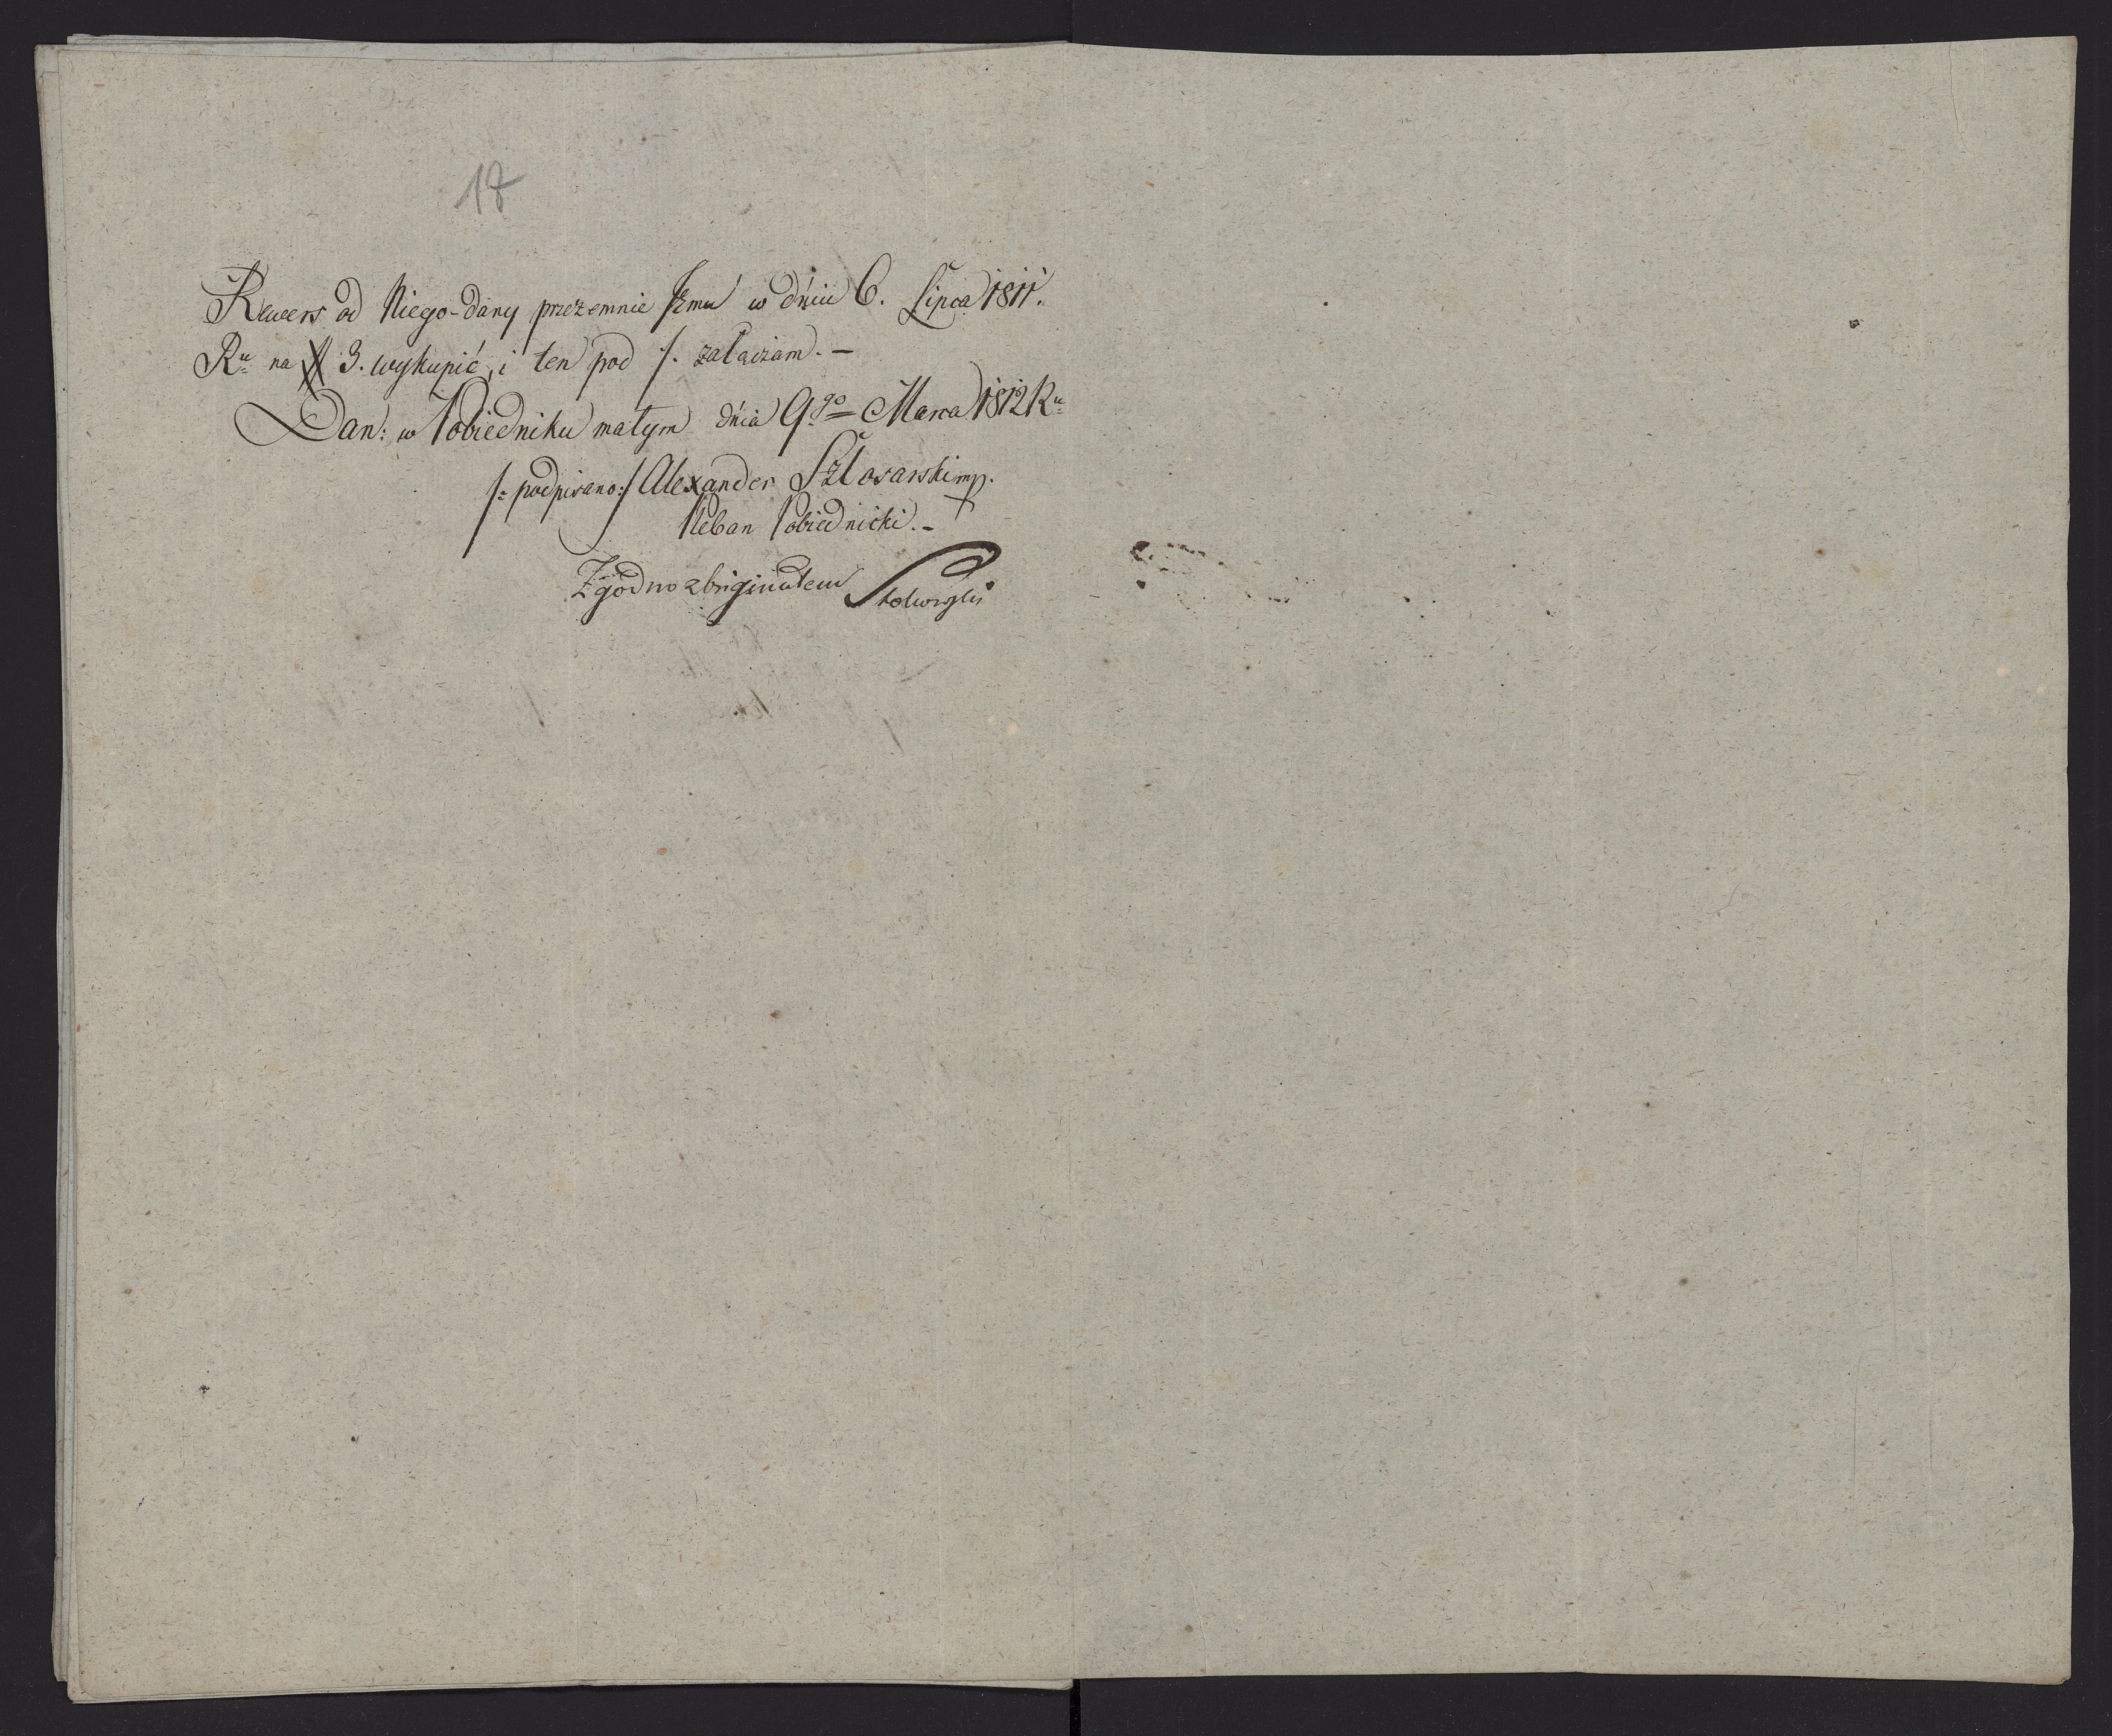 18
Rewers od Niego - dany przezemnie Jemu w dniu 6. Lipca 1811.
Ru na # 3. wykupić, i ten pod /. załączam. —
Dan: w Pobiedniku małym dnia 9go Marca 1812 Ru
/: podpisano :/ Alexander Szlosarski mp.
Pleban Pobiednicki. —
Zgodno z Originałem